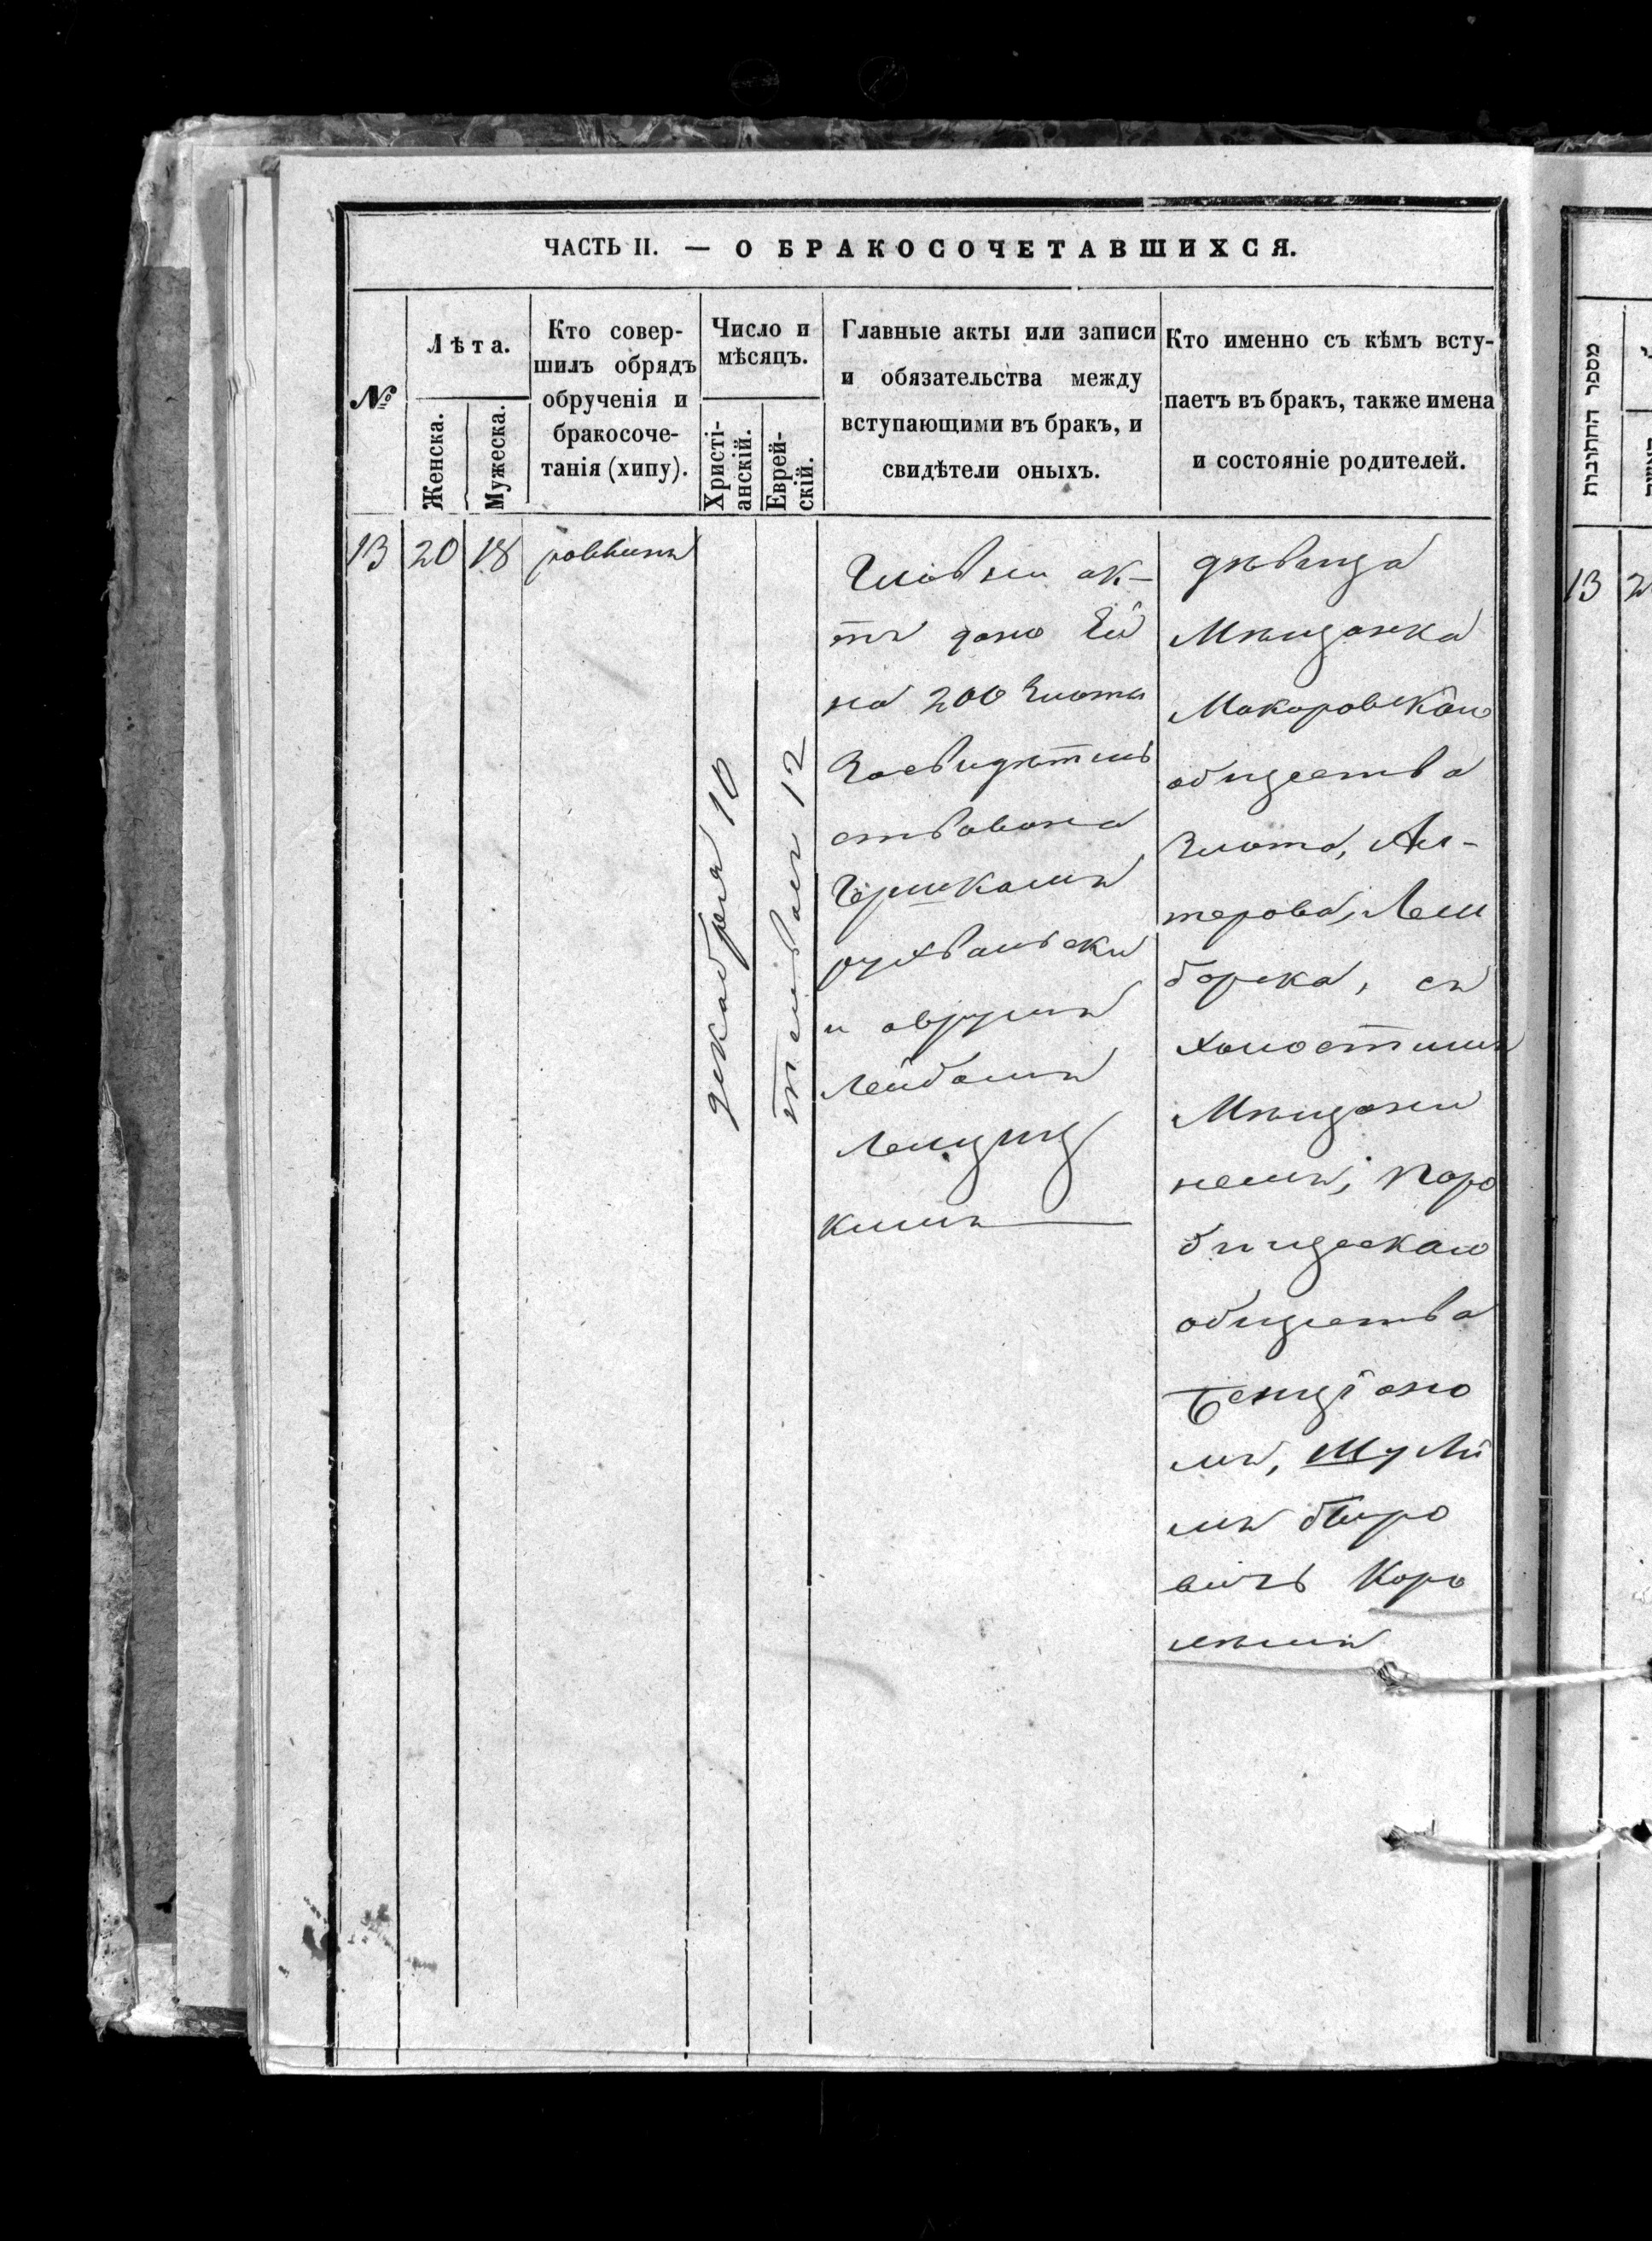 ЧАСТЬ II. — О БРАКОСОЧЕТАВШИХСЯ.
№
Лѣта.
Женска.
Мужеска.
Кто совер-
шилъ обрядъ
обрученія и
бракосоче-
танія (хипу).
Число и
мѣсяцъ.
Христі-
анскій.
Еврей-
скій.
Главные акты или записи
и обязательства между
вступающими въ бракъ, и
свидѣтели оныхъ.
Кто именно съ кѣмъ всту-
паетъ въ бракъ, также имена
и состояніе родителей.
13
20
18
раввинъ
декабря 10
12
Главни ак-
тъ дано Ей
на 200 Злоты
Засвидѣтель
ствована
Гершкамъ
и
Лейбамъ
кимъ
дѣвица
Мѣщанка
Макаровскаго
общества
Злота, Ал-
терова, Лем
берска, съ
холостимъ
Мѣщани
немъ,
общества
Бенціоно
мъ,
Каро
מספר החתונות
13
2